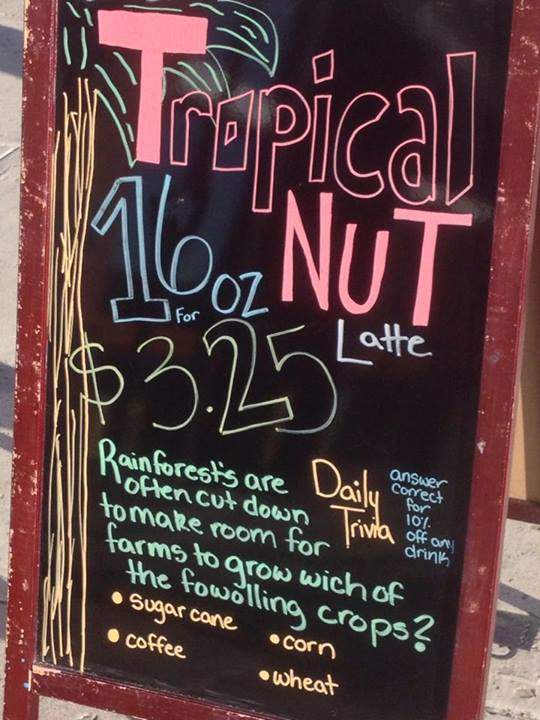 Tropical
16 oz NUT
For Latte
$3.25
Rainforests's are
often cut down
to make room for
farms to grow wich of
the fowolling crops?
Daily
Trivia
answer
correct
for
10%
off any
drink
• sugar cane
• corn
• coffee
• wheat